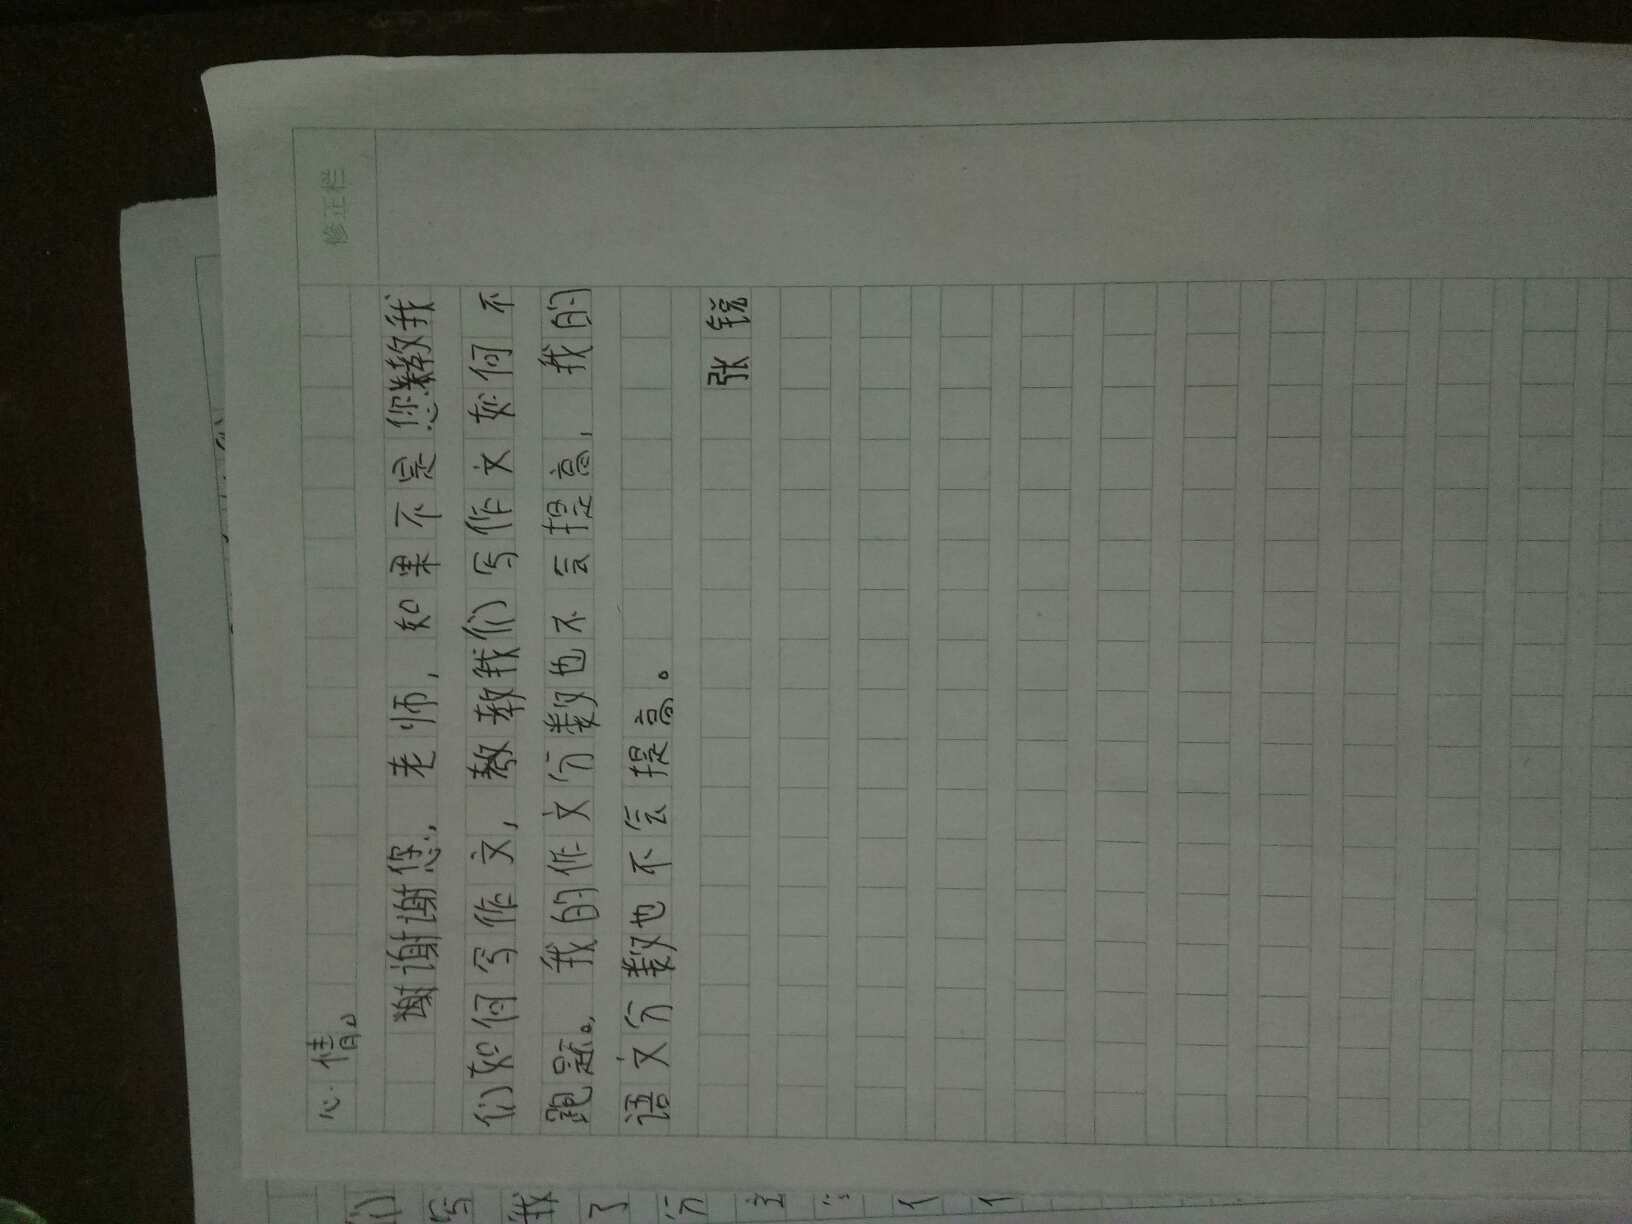 修正栏
心情。
谢谢谢您，老师，如果不是您教我
们如何写作文，教教我们写作文如何不
跑题。我的作文分数也不会提高，我的
语文分数也不会提高。
张锐